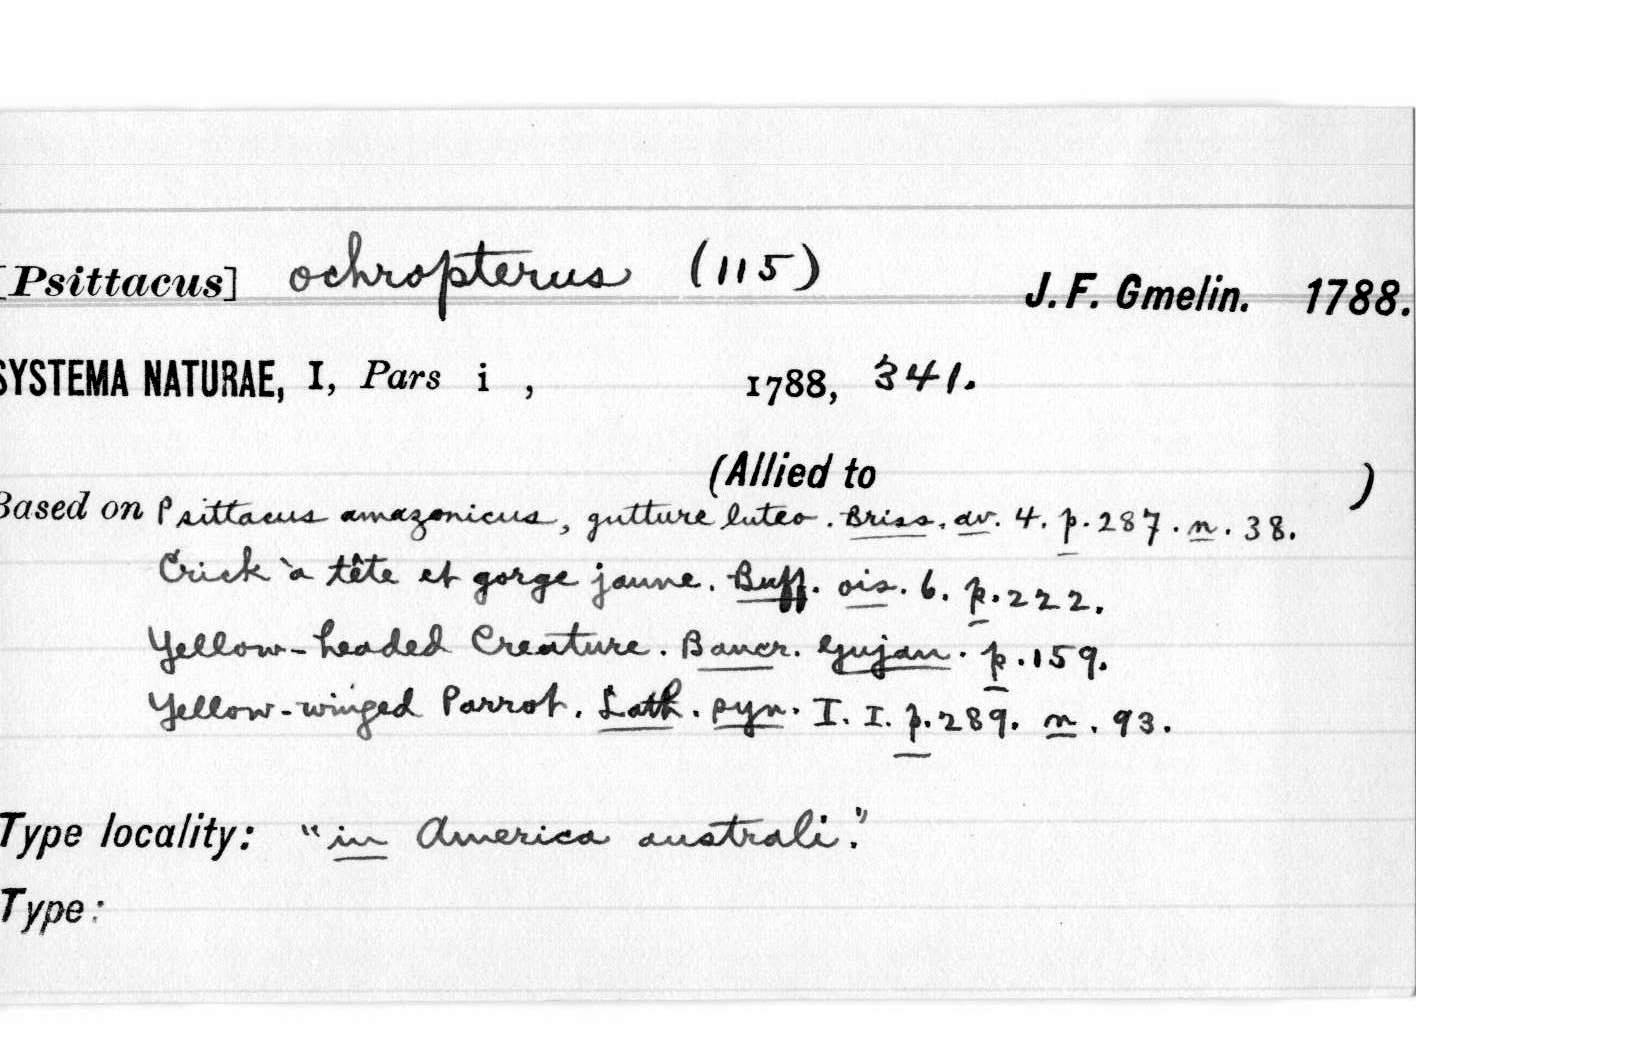 [Psittacus] ochropterus (115) J. F. Gmelin. 1788.
SYSTEMA NATURAE, I, Pars i , 1788, 341.
(Allied to )
Based on Psittacus amazonicus, gutture luteo. Briss. av. 4. p. 287. n. 38.
Crick à tête et gorge jaune. Buff. ois. 6. p. 222.
Yellow-headed Creature. Bancr. Gujan. p. 159.
Yellow-winged Parrot. Lath. syn. I. I. p. 289. n. 93.
Type locality: "in America australi."
Type: